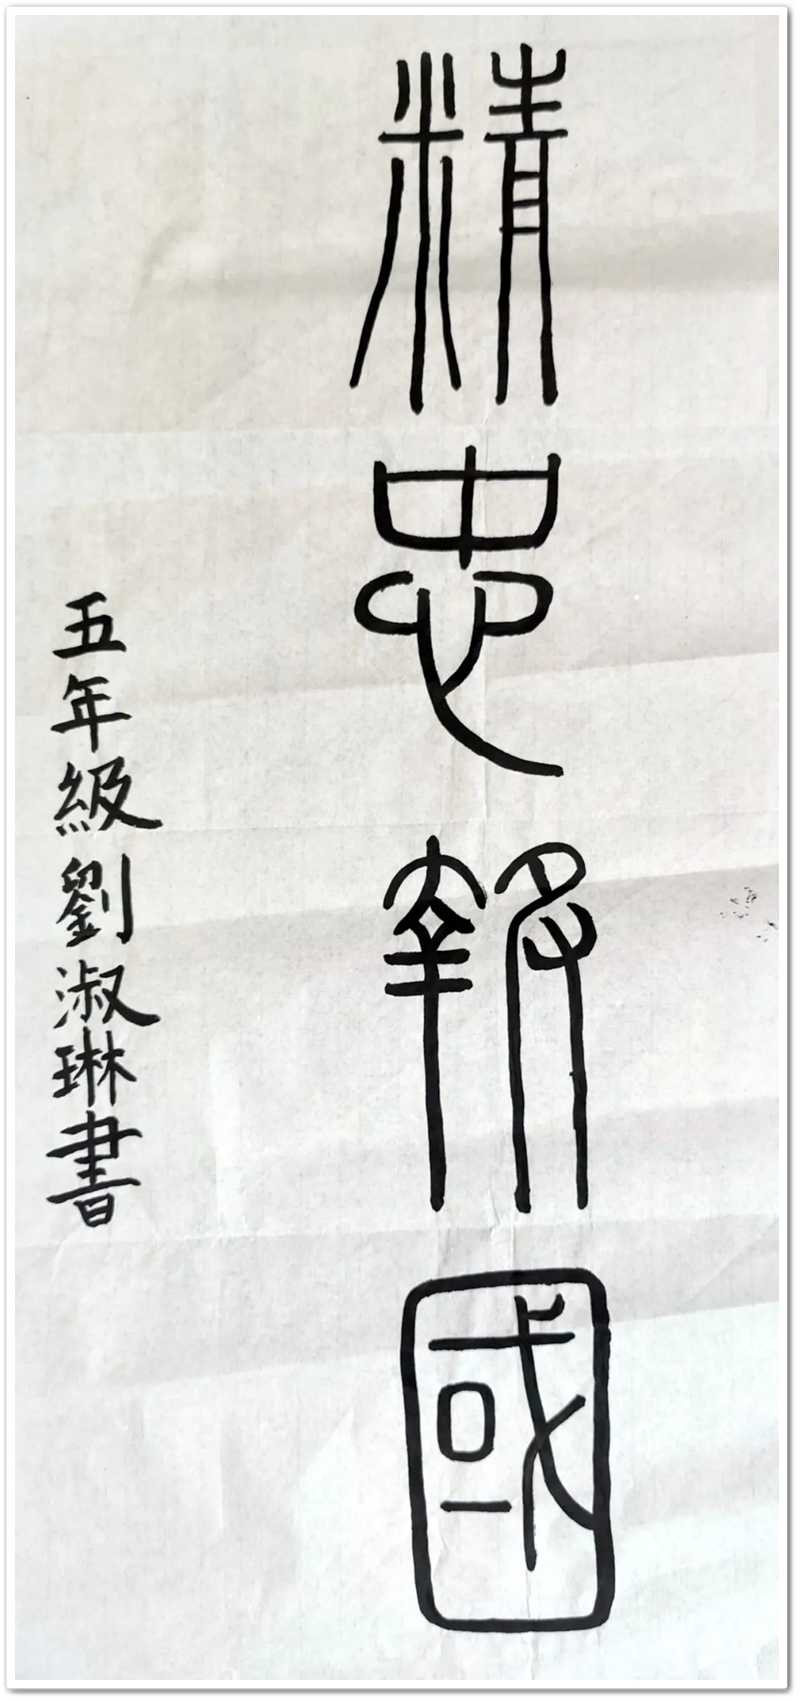 精忠報國
五年級劉淑琳書